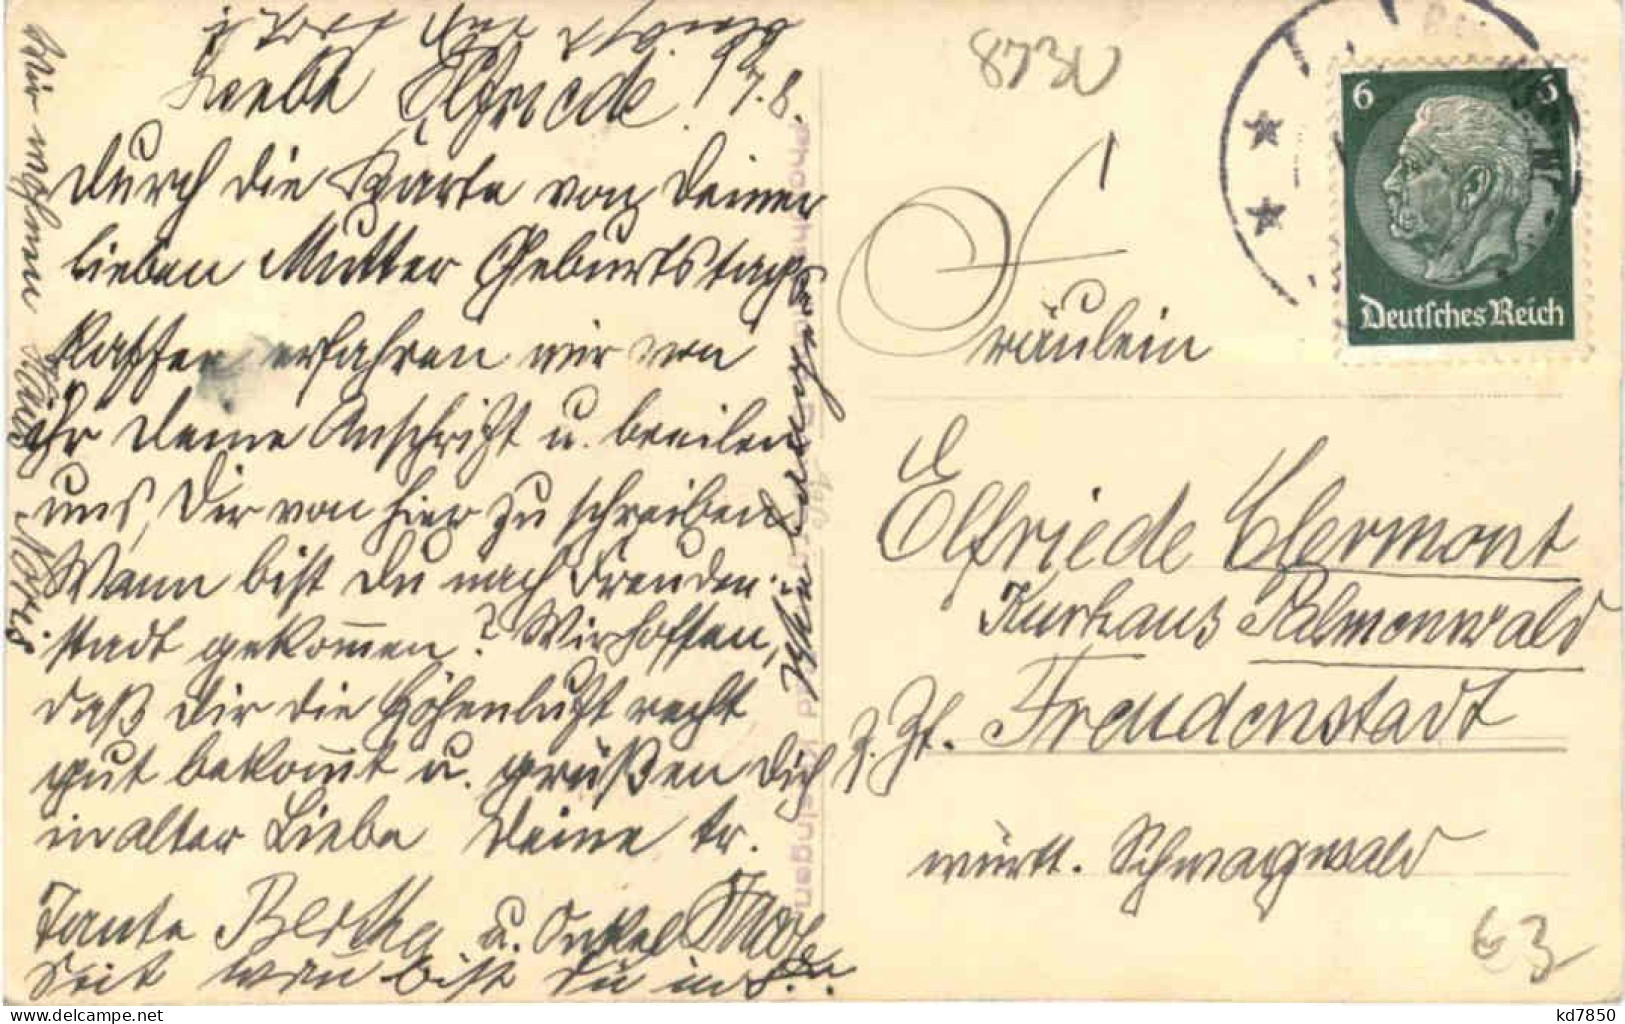 Liebe Elfriede! 17.8.
Durch die Karte von Deiner
lieben Mutter Geburtstags
Kaffee erfahren wir von
ihr Deine Anschrift u. beeilen
uns, Dir von hier zu schreiben.
Wann bist Du nach Freuden-
stadt gekommen? Wir hoffen,
daß Dir die Höhenluft recht
gut bekommt u. grüßen Dich
in alter Liebe Deine tr.
Tante Bertha u. Onkel
Seit wann bist Du in
Wir wohnen Haus
Fräulein
Elfriede Clermont
Kurhaus Palmenwald
z. Zt. Freudenstadt
württ. Schwarzwald
6 6
Deutsches Reich
63
kd7850
delcampe.net